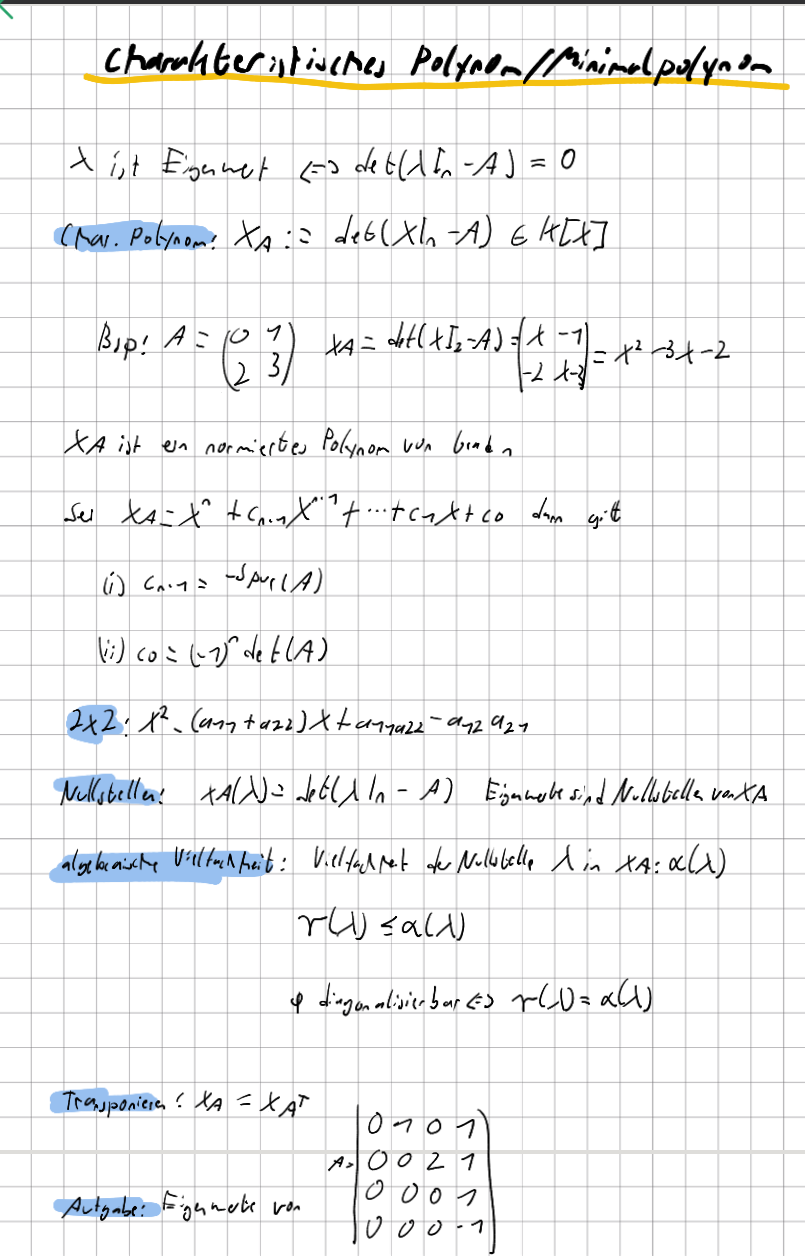 Charakteristisches Polynom//Minimalpolynom
λ ist Eigenwert <=> det(λIn - A) = 0
Char. Polynom: XA := det(XIn - A) ∈ K[X]
Bsp: A = (0 1; 2 3) XA = det(XI2 - A) = |X -1; -2 X-3| = X² - 3X - 2
XA ist ein normiertes Polynom von Grad n
Sei XA = X^n + cn-1X^n-1 + ... + c1X + c0 dann gilt
(i) cn-1 = -Spur(A)
(ii) c0 = (-1)^n det(A)
2x2: X² - (a11 + a22)X + a11a22 - a12a21
Nullstellen: XA(λ) = det(λIn - A) Eigenwerte sind Nullstellen von XA
algebraische Vielfachheit: Vielfachheit der Nullstelle λ in XA: α(λ)
γ(λ) ≤ α(λ)
φ diagonalisierbar <=> γ(λ) = α(λ)
Transponieren: XA = XA^T
Aufgabe: Eigenwerte von A = (0 1 0 1; 0 0 2 1; 0 0 0 1; 0 0 0 -1)